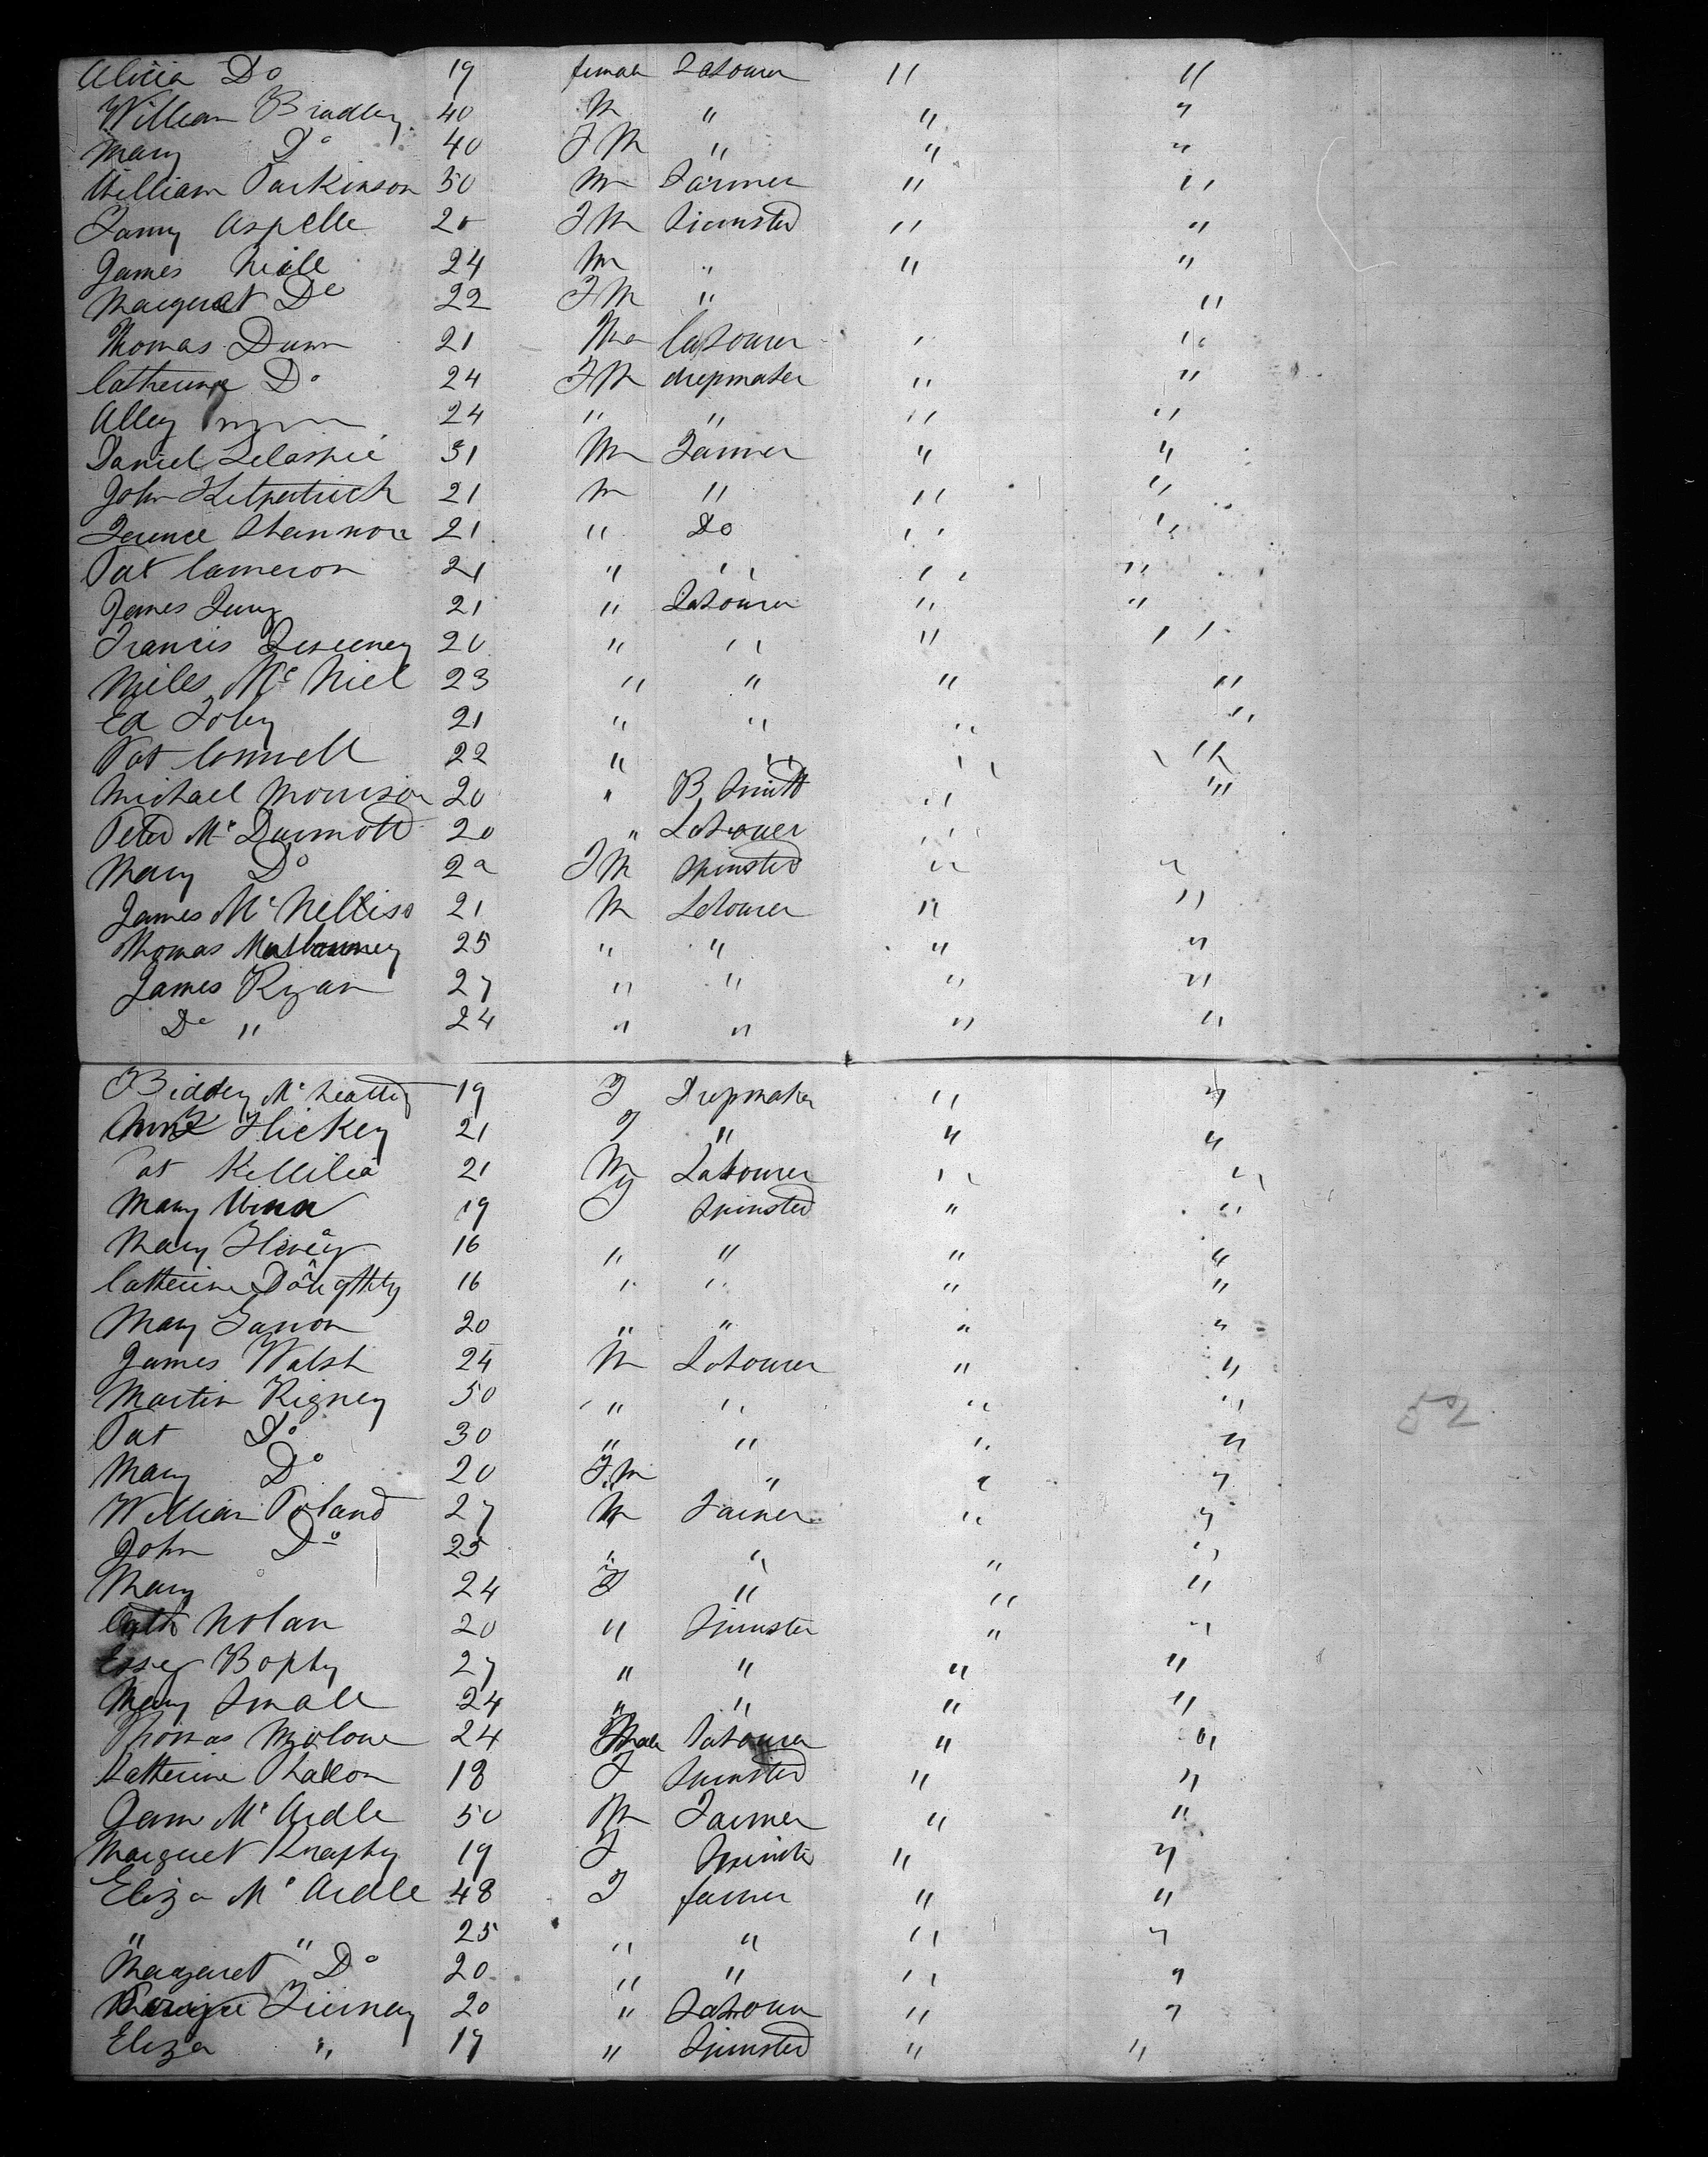 Alicia Do 19 female Labourer " "
William Bradley 40 M " " "
Mary Do 40 F M " " "
William Parkinson 50 M Farmer " "
Fanny Aspelle 20 F M Spinster " "
James Neill 24 M " " "
Margaret Do 22 F M " "
Thomas Dunn 21 Ma labourer " "
Catherine Do 24 F M dressmaker " "
Alley 24 " " " "
Daniel 31 M Farmer " "
John Kilpatrick 21 M " " "
Terence Shannon 21 " Do " "
Pat Cameron 21 " " " "
James 21 " Labourer " "
Francis Sweeney 20 " " " "
Miles McNiel 23 " " " "
Ed Foley 21 " " " "
Pat Connell 22 " " " "
Michael Morrison 20 " B Smith " "
Peter McDurmott 20 " Labouer "
Mary Do 2 F M Spinster " "
James McNelliss 21 M Labourer " "
Thomas 25 " " " "
James Ryan 27 " " " "
Do " 24 " " " "
Biddey Mc 19 F Dressmaker " "
Hickey 21 F " " "
Pat Killilea 21 M Labourer " "
Mary 19 F Spinster " "
Mary 16 " " " "
Catherine Doughthy 16 " " " "
Mary Ganon 20 " " " "
James Walsh 24 M Labourer " "
Martin Rigney 50 " " " "
Pat Do 30 " " " "
Mary Do 20 F.M " " "
William Poland 27 M Farmer " "
John Do 25 " " " "
Mary 24 F " " "
Cath Nolan 20 " Spinster " "
Essey Bophy 27 " " " "
Mary Small 24 " " " "
Thomas Molone 24 Male Labourer " "
Catherine Phalon 18 F Spinster " "
Jam McArdle 50 M Farmer " "
Margret Knaphy 19 F Spinster " "
Eliza McArdle 48 F farmer " "
" " 25 " " " "
Margaret Do 20 " " " "
Tiernay 20 " Labourer " "
Eliza " 19 " Spinster " "
52